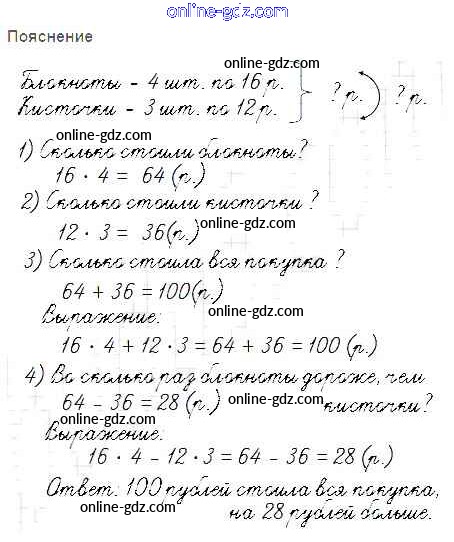 online-gdz.com
Пояснение
online-gdz.com
Блокноты - 4 шт. по 16 р.
Кисточки - 3 шт. по 12 р. } ? р. ? р.
online-gdz.com
online-gdz.com
1) Сколько стоили блокноты?
16 · 4 = 64 (р.) online-gdz.com
2) Сколько стоили кисточки ?
12 · 3 = 36(р.) online-gdz.com
3) Сколько стоила вся покупка ?
online-gdz.com
64 + 36 = 100(р.)
online-gdz.com
Выражение:
16 · 4 + 12 · 3 = 64 + 36 = 100 (р.)
online-gdz.com
4) Во сколько раз блокноты дороже, чем
64 - 36 = 28 (р.) online-gdz.com кисточки?
online-gdz.com
Выражение:
16 · 4 - 12 · 3 = 64 - 36 = 28 (р.)
online-gdz.com
Ответ: 100 рублей стоила вся покупка,
online-gdz.com
на 28 рублей больше.